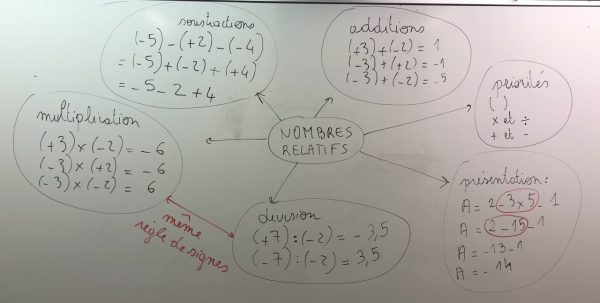 soustractions
(-5) - (+2) - (-4)
= (-5) + (-2) + (+4)
= -5 - 2 + 4
additions
(+3) + (-2) = 1
(-3) + (+2) = -1
(-3) + (-2) = -5
priorités
( )
× et ÷
+ et -
multiplication
(+3) × (-2) = -6
(-3) × (+2) = -6
(-3) × (-2) = 6
NOMBRES
RELATIFS
présentation :
A = 2 - 3 × 5 - 1
A = 2 - 15 - 1
A = -13 - 1
A = -14
même
règle de signes
division
(+7) : (-2) = -3,5
(-7) : (-2) = 3,5